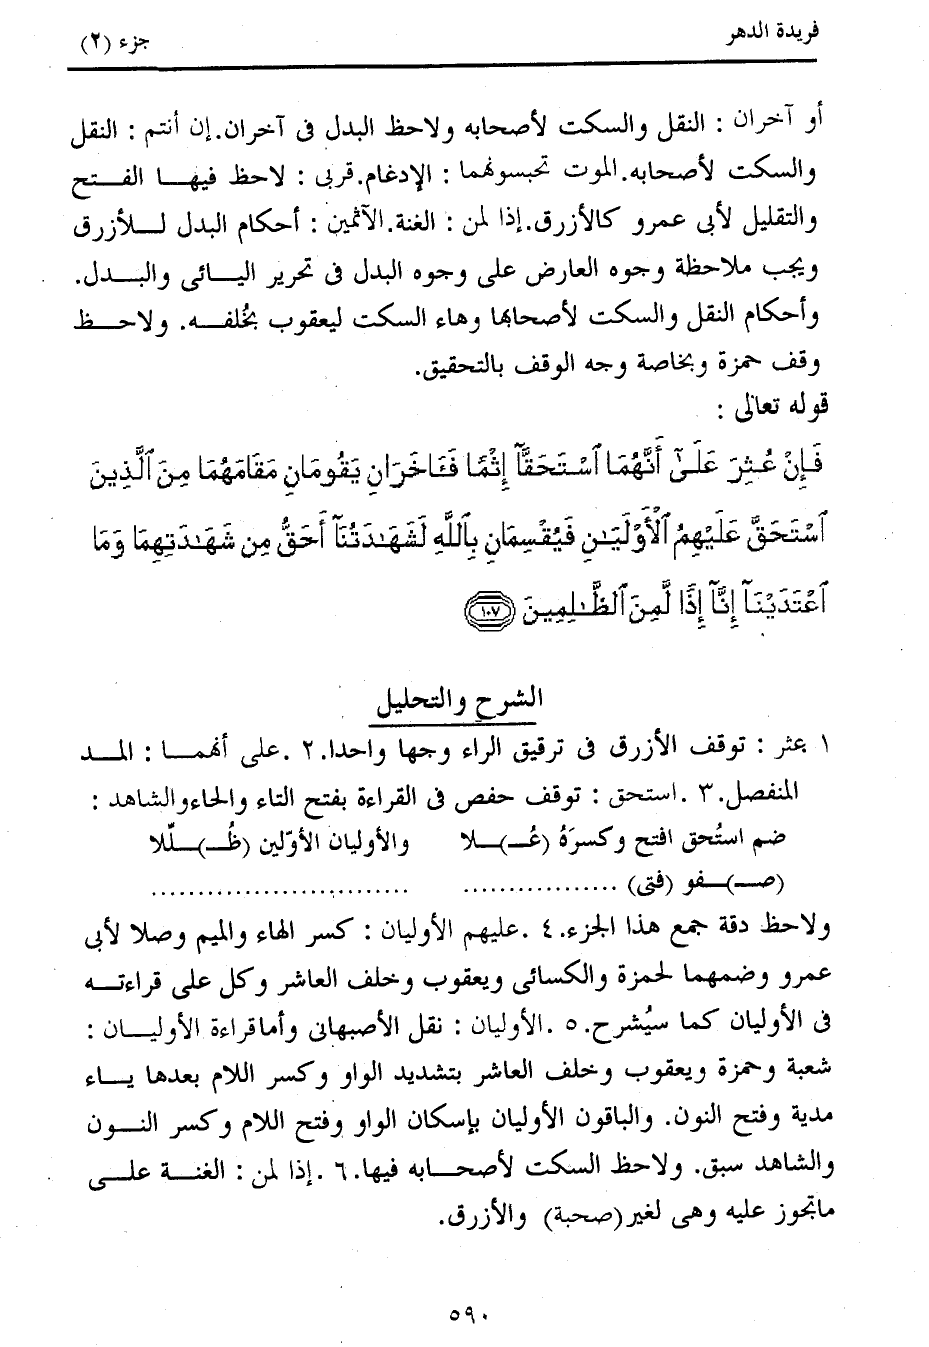 فريدة الدهر
جزء (٢)
أو آخران : النقل والسكت لأصحابه ولاحظ البدل فى آخران.إن أنتم : النقل
والسكت لأصحابه.الموت تحبسونهما : الإدغام.قربى : لاحظ فيها الفتح
والتقليل لأبى عمرو كالأزرق.إذا لمن : الغنة.الآثمين : أحكام البدل للأزرق
ويجب ملاحظة وجوه العارض على وجوه البدل فى تحرير اليائى والبدل.
وأحكام النقل والسكت لأصحابها وهاء السكت ليعقوب بخُلفه. ولاحظ
وقف حمزة وبخاصة وجه الوقف بالتحقيق.
قوله تعالى :
فَإِنْ عُثِرَ عَلَىٰٓ أَنَّهُمَا ٱسْتَحَقَّآ إِثْمًا فَـَٔاخَرَانِ يَقُومَانِ مَقَامَهُمَا مِنَ ٱلَّذِينَ
ٱسْتَحَقَّ عَلَيْهِمُ ٱلْأَوْلَيَـٰنِ فَيُقْسِمَانِ بِٱللَّهِ لَشَهَـٰدَتُنَآ أَحَقُّ مِن شَهَـٰدَتِهِمَا وَمَا
ٱعْتَدَيْنَآ إِنَّآ إِذًا لَّمِنَ ٱلظَّـٰلِمِينَ ١٠٧
الشرح والتحليل
١ عثر : توقف الأزرق فى ترقيق الراء وجها واحدا.٢ .على أنهما : المد
المنفصل.٣ .استحق : توقف حفص فى القراءة بفتح التاء والحاءوالشاهد :
ضم استُحق افتح وكسرَهُ (عُـ)ـلا والأوليان الأوّلين (ظُـ)ـلّلا
(صـ)ـفو (فتى) ................. ..........................
ولاحظ دقة جمع هذا الجزء.٤ .عليهم الأوليان : كسر الهاء والميم وصلا لأبى
عمرو وضمهما لحمزة والكسائى ويعقوب وخلف العاشر وكل على قراءته
فى الأوليان كما سيُشرح.٥ .الأوليان : نقل الأصبهانى وأماقراءة الأوليان :
شعبة وحمزة ويعقوب وخلف العاشر بتشديد الواو وكسر اللام بعدها ياء
مدية وفتح النون. والباقون الأوليان بإسكان الواو وفتح اللام وكسر النون
والشاهد سبق. ولاحظ السكت لأصحابه فيها.٦ .إذا لمن : الغنة على
ماتجوز عليه وهى لغير(صحبة) والأزرق.
٥٩٠